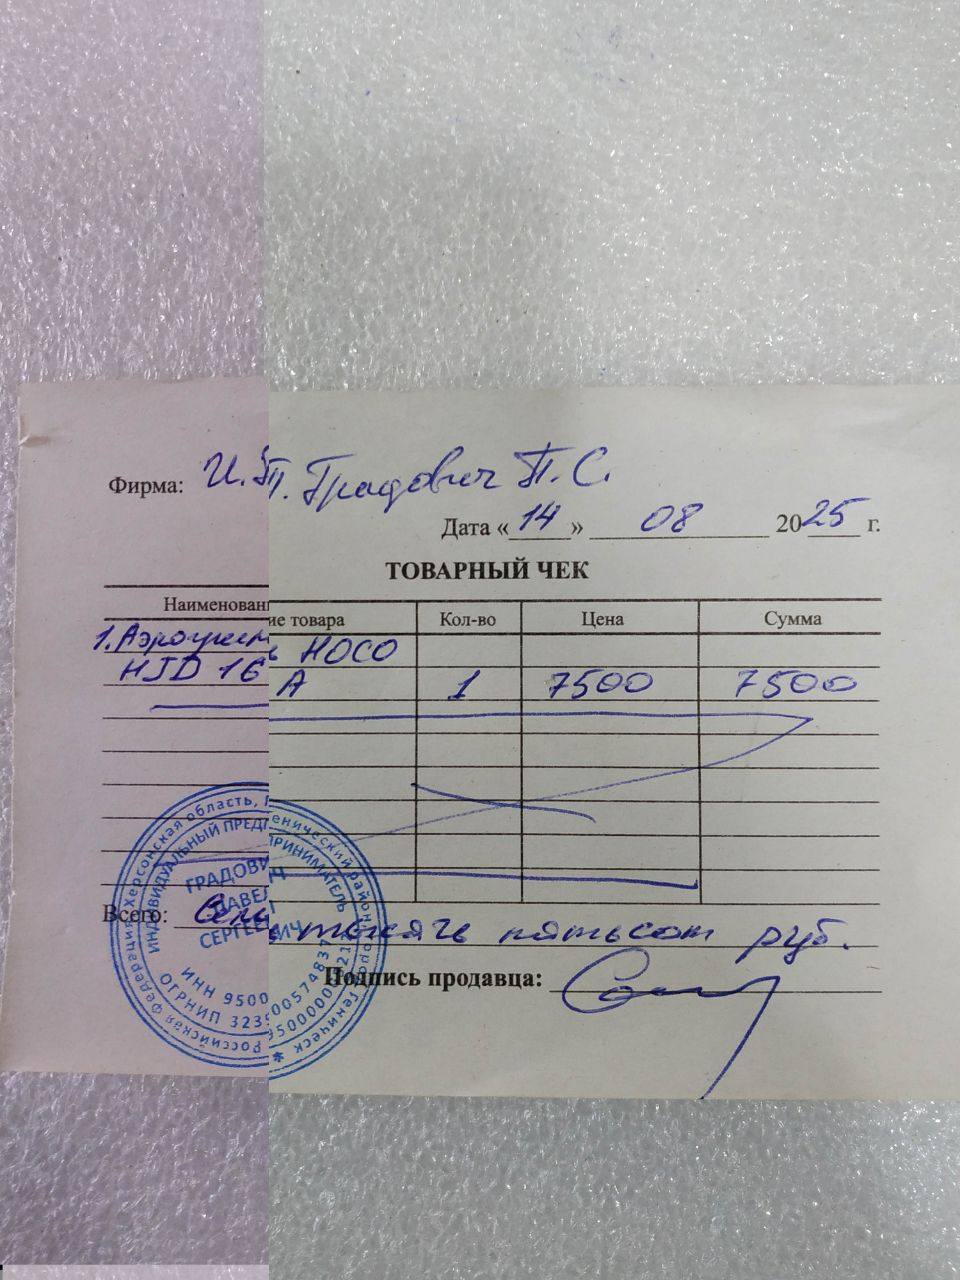 Фирма: И.П. Градович П.С.
Дата «14» 08 2025 г.
ТОВАРНЫЙ ЧЕК
Наименование товара Кол-во Цена Сумма
1. Аэрогриль HOCO
HJD 16 A 1 7500 7500
Всего: Семь тысяч пятьсот руб.
Подпись продавца:
Российская Федерация, Херсонская область, Генический район, город Геническ *
ИНДИВИДУАЛЬНЫЙ ПРЕДПРИНИМАТЕЛЬ
ГРАДОВИЧ
ПАВЕЛ
СЕРГЕЕВИЧ
ИНН
ОГРНИП